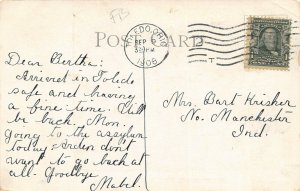 POST CARD
TOLEDO, OHIO
SEP 6
1906
Dear Bertha:
Arrived in Toledo
safe and having
a fine time. Will
be back. Mon.
going to the assylum
today & don't
want to go back at
all. Goodbye
Mabel.
Mrs. Bart Krisher
No. Manchester
Ind.